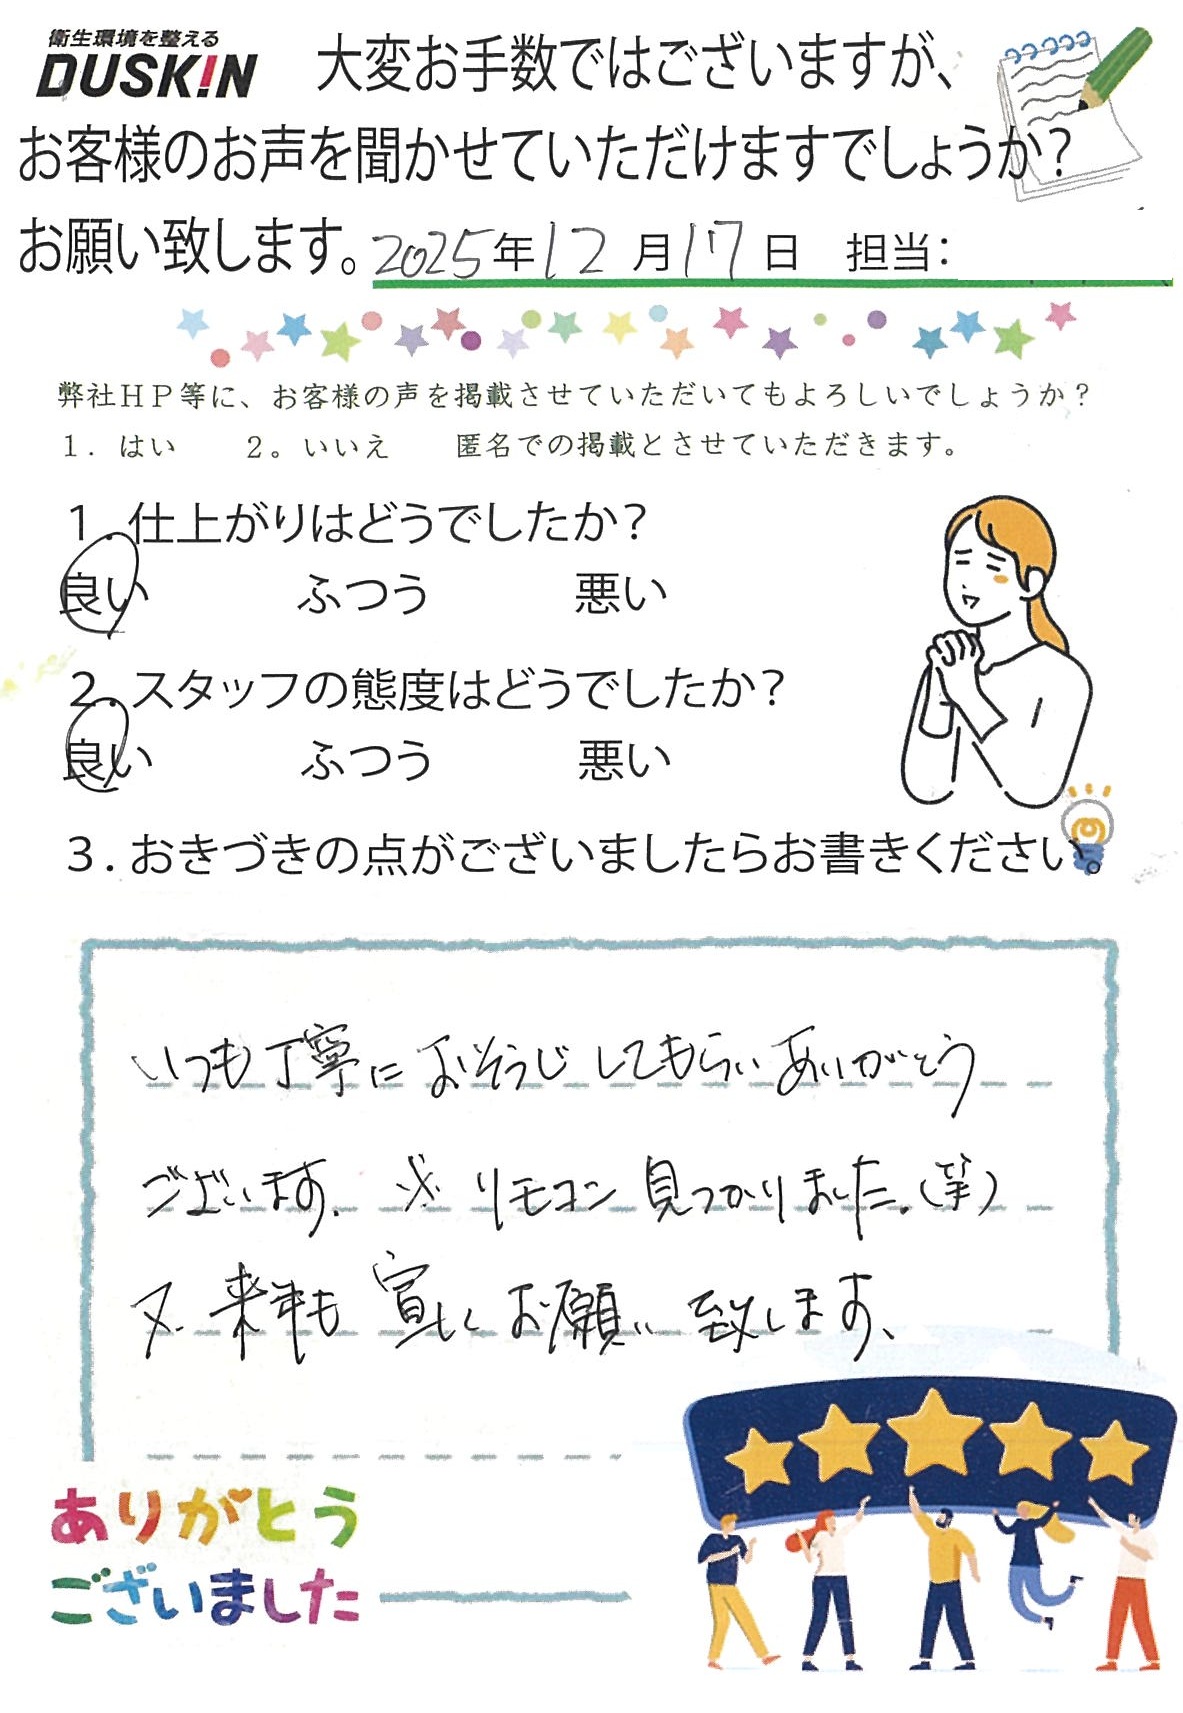 衛生環境を整える
DUSKIN
大変お手数ではございますが、
お客様のお声を聞かせていただけますでしょうか？
お願い致します。2025年12月17日 担当:
弊社ＨＰ等に、お客様の声を掲載させていただいてもよろしいでしょうか？
１．はい ２。いいえ 匿名での掲載とさせていただきます。
１.仕上がりはどうでしたか？
良い ふつう 悪い
２.スタッフの態度はどうでしたか？
良い ふつう 悪い
３.おきづきの点がございましたらお書きください。
いつも丁寧におそうじしてもらいありがとう
ございます. ※リモコン見つかりました.(笑)
又、来年も宜しくお願い致します、
ありがとう
ございました